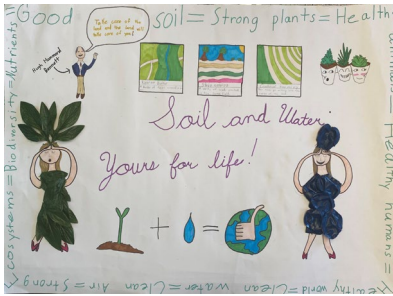 Good soil = Strong plants = Health
animals = Healthy humans = H
ealthy world = Clean water = Clean Air = Strong
Ecosystems = Biodiversity = Nutrients =
Take care of the
land and the land will
take care of you!
Hugh Hammond
Bennett
Soil and Water:
Yours for life!
+ =